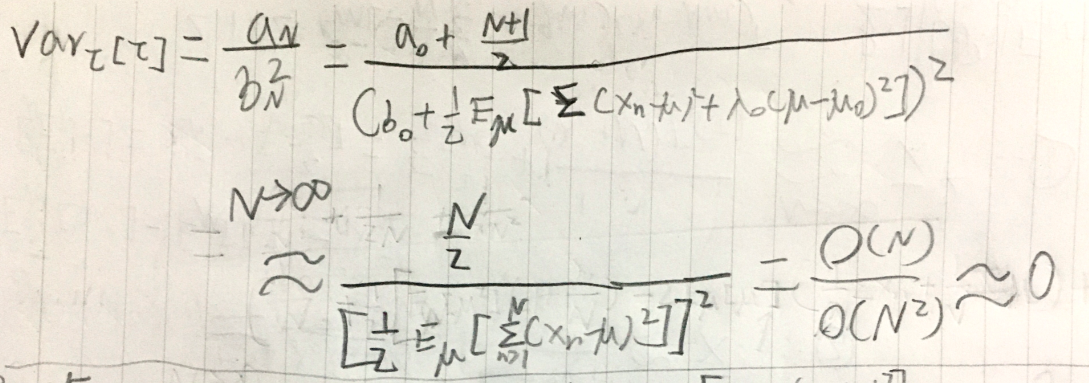 Var_τ[τ] = a_N / b_N^2 = (a_0 + (N+1)/2) / (b_0 + 1/2 E_μ[Σ(x_n-μ)^2 + λ_0(μ-μ_0)^2])^2
N→∞
≈ (N/2) / [1/2 E_μ[Σ_{n=1}^N (x_n-μ)^2]]^2 = O(N) / O(N^2) ≈ 0